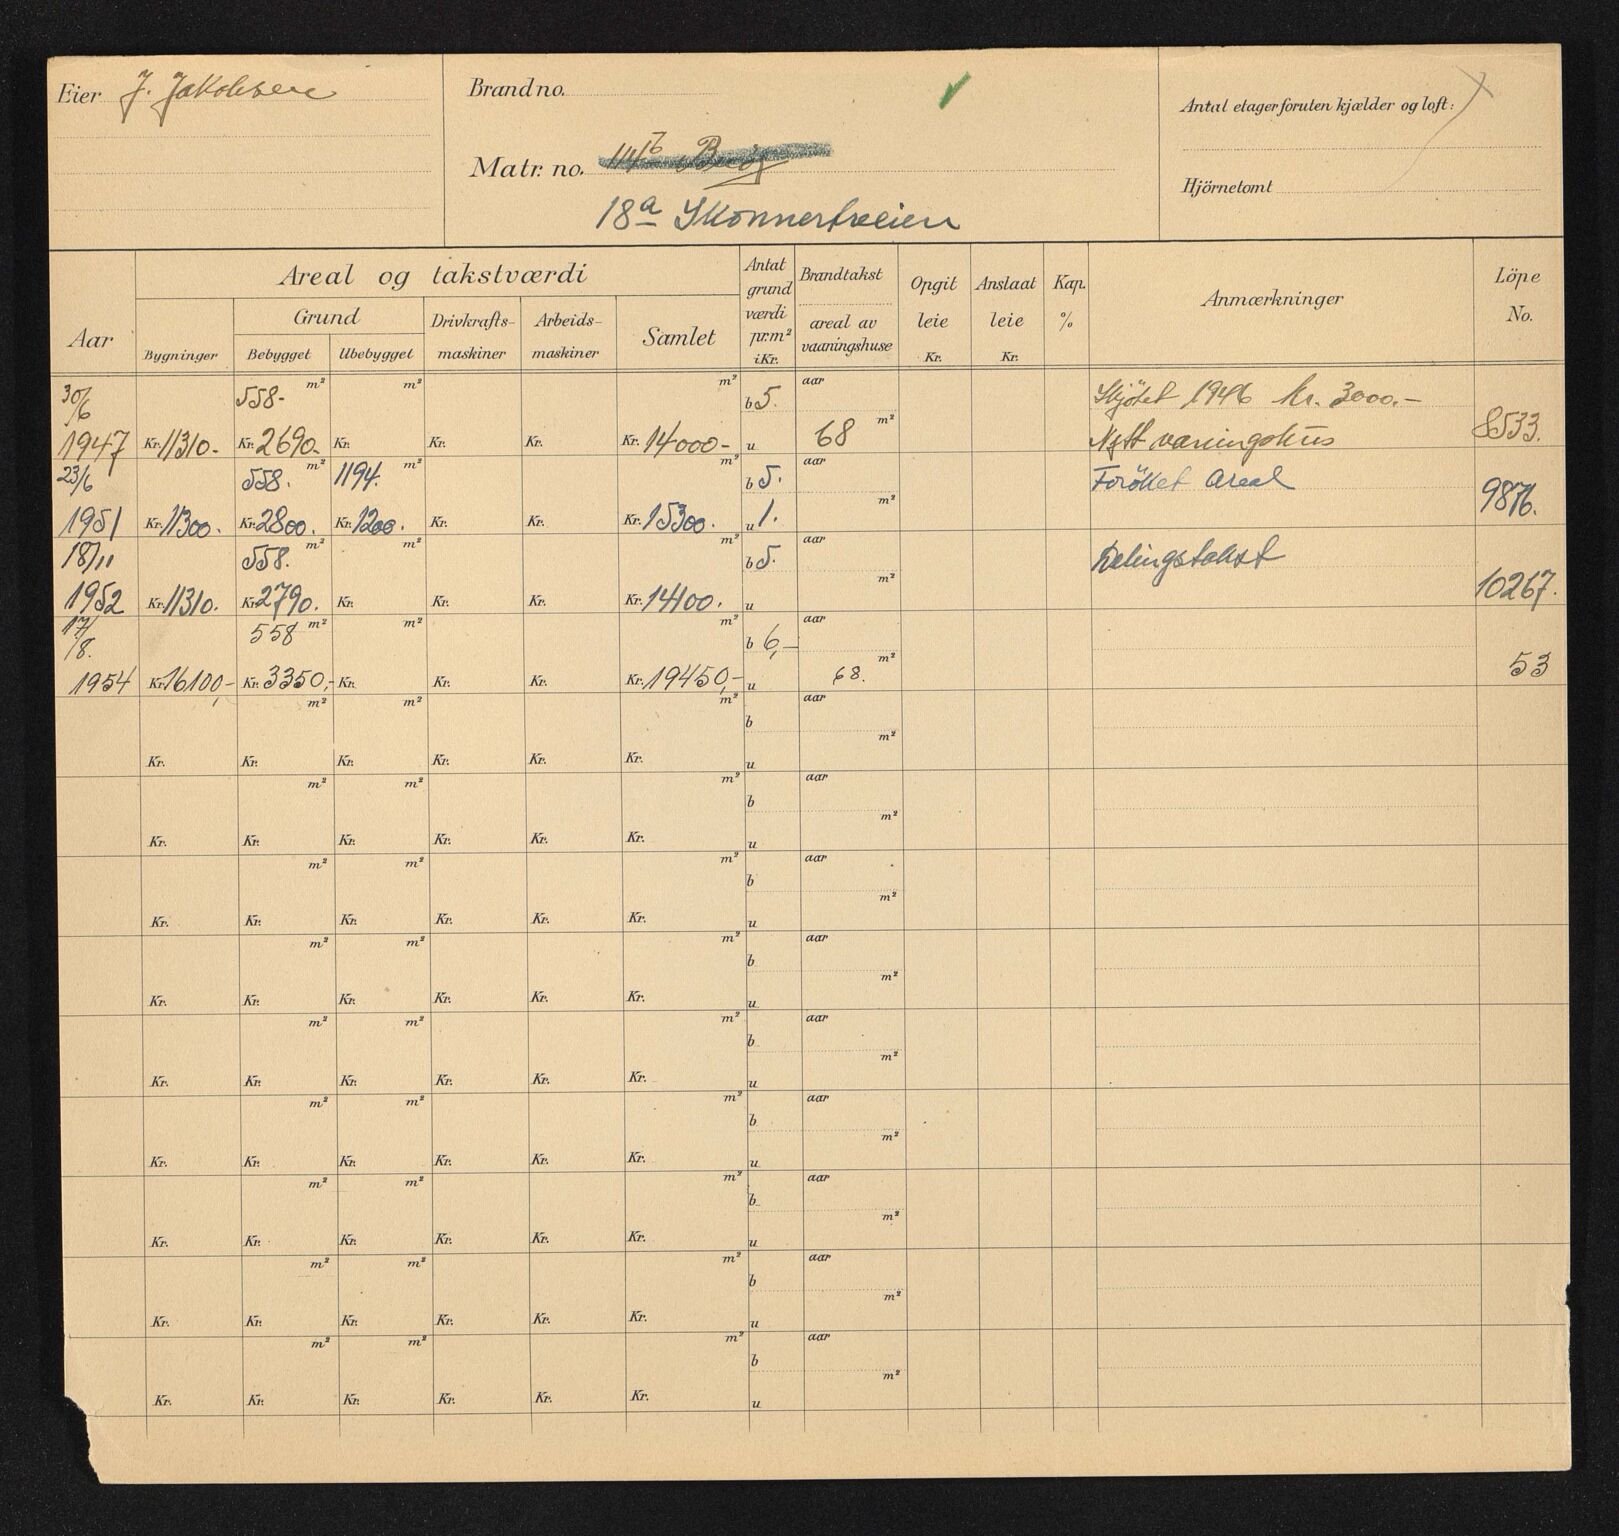 Eier J. Jakobsen
Brand no.
Antal etager foruten kjælder og loft:
Matr. no. 114b Berg
Hjörnetomt
18a Skonnertveien
Aar
Areal og takstværdi
Bygninger
Grund
Bebygget Ubebygget
Drivkrafts-
maskiner
Arbeids-
maskiner
Samlet
Antat
grund
værdi
pr. m²
i Kr.
Brandtakst
areal av
vaaningshuse
Opgit
leie
Kr.
Anslaat
leie
Kr.
Kap.
%
Anmærkninger
Löpe
No.
30/6 558.- m² m² m² b 5. aar Skjötet 1946 kr. 3000.-
1947 Kr. 11310.- Kr. 2690.- Kr. Kr. Kr. Kr. 14000- u 68 m² Nytt vaningshus 8533.
23/6 558. m² 1194. m² m² b 5. aar Foröket Areal
1951 Kr. 11300. Kr. 2800. Kr. 1200. Kr. Kr. Kr. 15300. u 1. m² 9876.
18/11 558. m² m² m² b 5. aar Delingstakst
1952 Kr. 11310. Kr. 2790. Kr. Kr. Kr. Kr. 14100. u m² 10267.
17/8. 558 m² m² m² b 6,- aar
1954 Kr. 16100,- Kr. 3350,- Kr. Kr. Kr. Kr. 19450,- u 68. m² 53
m² m² m² b aar
Kr. Kr. Kr. Kr. Kr. Kr. u m²
m² m² m² b aar
Kr. Kr. Kr. Kr. Kr. Kr. u m²
m² m² m² b aar
Kr. Kr. Kr. Kr. Kr. Kr. u m²
m² m² m² b aar
Kr. Kr. Kr. Kr. Kr. Kr. u m²
m² m² m² b aar
Kr. Kr. Kr. Kr. Kr. Kr. u m²
m² m² m² b aar
Kr. Kr. Kr. Kr. Kr. Kr. u m²
m² m² m² b aar
Kr. Kr. Kr. Kr. Kr. Kr. u m²
m² m² m² b aar
Kr. Kr. Kr. Kr. Kr. Kr. u m²
m² m² m² b aar
Kr. Kr. Kr. Kr. Kr. Kr. u m²